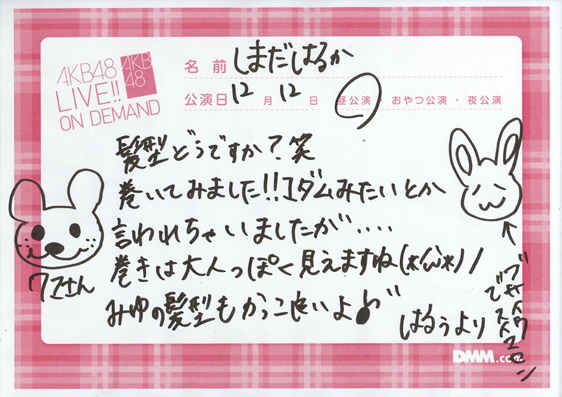 AKB48
LIVE!!
ON DEMAND
AKB
48
名前 しまだはるか
公演日 12月12日 昼公演・おやつ公演・夜公演
髪型どうですか？笑
巻いてみました!!マダムみたいとか
言われちゃいましたが....
巻きは大人っぽく見えますね
みゆの髪型もかっこ良いよ♪
はるぅより
クマさん
DMM.com